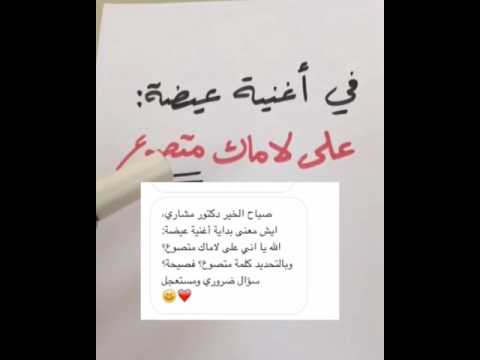 في أغنية عيضة:
على لاماك متصوع
صباح الخير دكتور مشاري،
ايش معنى بداية أغنية عيضة:
الله يا اني على لاماك متصوع؟
وبالتحديد كلمة متصوع؟ فصيحة؟
سؤال ضروري ومستعجل
😊❤️